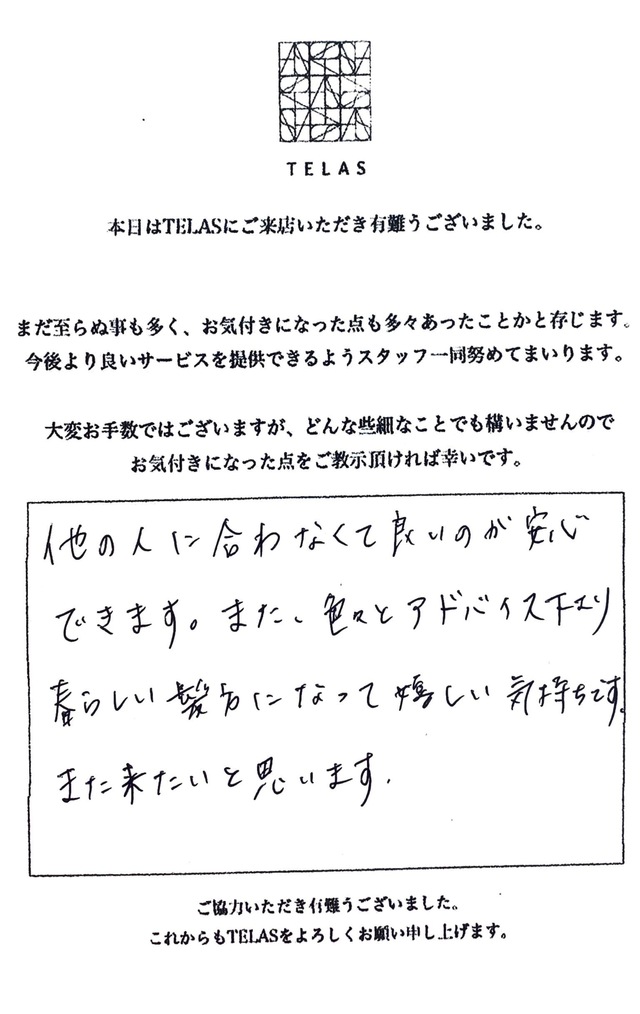 TELAS
本日はTELASにご来店いただき有難うございました。
まだ至らぬ事も多く、お気付きになった点も多々あったことかと存じます。
今後より良いサービスを提供できるようスタッフ一同努めてまいります。
大変お手数ではございますが、どんな些細なことでも構いませんので
お気付きになった点をご教示頂ければ幸いです。
他の人に合わなくて良いのが安心
できます。また、色々とアドバイス下さり
春らしい髪型になって嬉しい気持ちです。
また来たいと思います.
ご協力いただき有難うございました。
これからもTELASをよろしくお願い申し上げます。